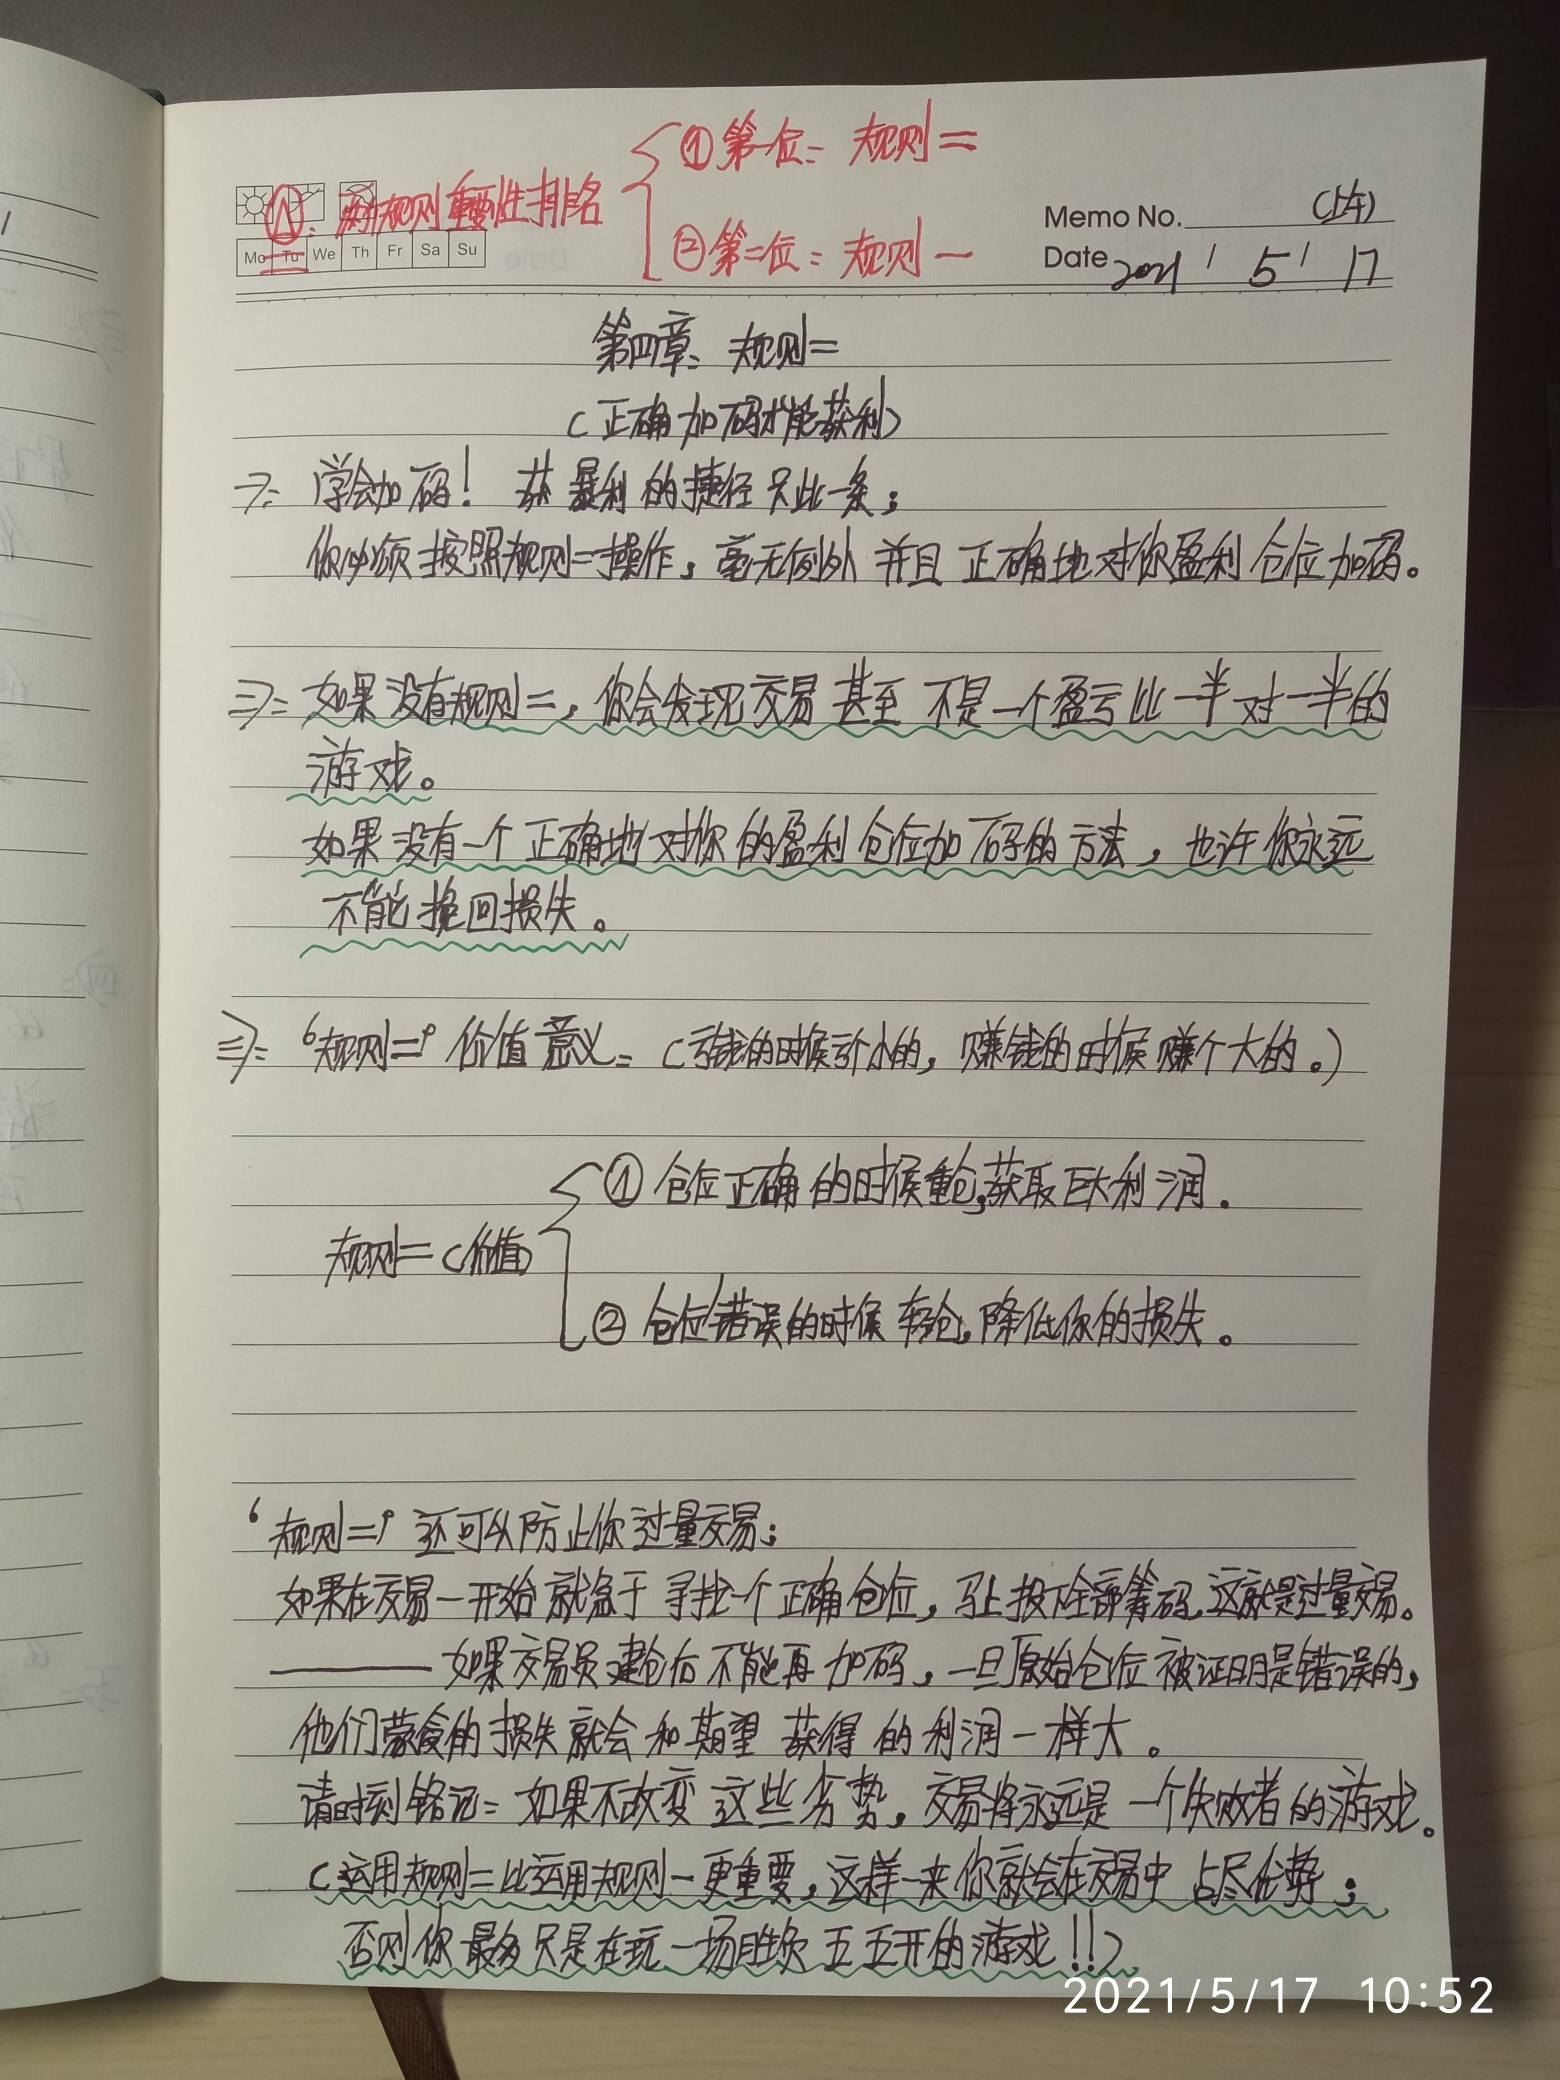 ① 第一位: 规则二
A: 两个规则重要性排名
② 第二位: 规则一
Memo No. (上午)
Mo Tu We Th Fr Sa Su
Date 2021 / 5 / 17
第四章: 规则二
(正确加码才能获利)
一>: 学会加码! 获暴利的捷径只此一条;
你必须按照规则二操作, 毫无例外 并且 正确地对你盈利仓位加码。
二>: 如果没有规则二, 你会发现交易甚至不是一个盈亏比一半对一半的
游戏。
如果没有一个正确地对你的盈利仓位加码的方法, 也许你永远
不能挽回损失。
三>: “规则二” 价值意义: (亏钱的时候亏小的, 赚钱的时候赚个大的。)
① 仓位正确的时候重仓,获取巨大利润.
规则二(价值)
② 仓位错误的时候轻仓, 降低你的损失。
“规则二” 还可以防止你过量交易;
如果在交易一开始就急于寻找一个正确仓位, 马上投下全部筹码,这就是过量交易。
———如果交易员建仓后不能再加码, 一旦原始仓位被证明是错误的,
他们蒙受的损失就会和期望获得的利润一样大。
请时刻铭记: 如果不改变这些劣势, 交易将永远是一个失败者的游戏。
(运用规则二比运用规则一更重要, 这样一来你就会在交易中占尽优势;
否则你最多只是在玩一场胜负五五开的游戏!!)
2021/5/17 10:52